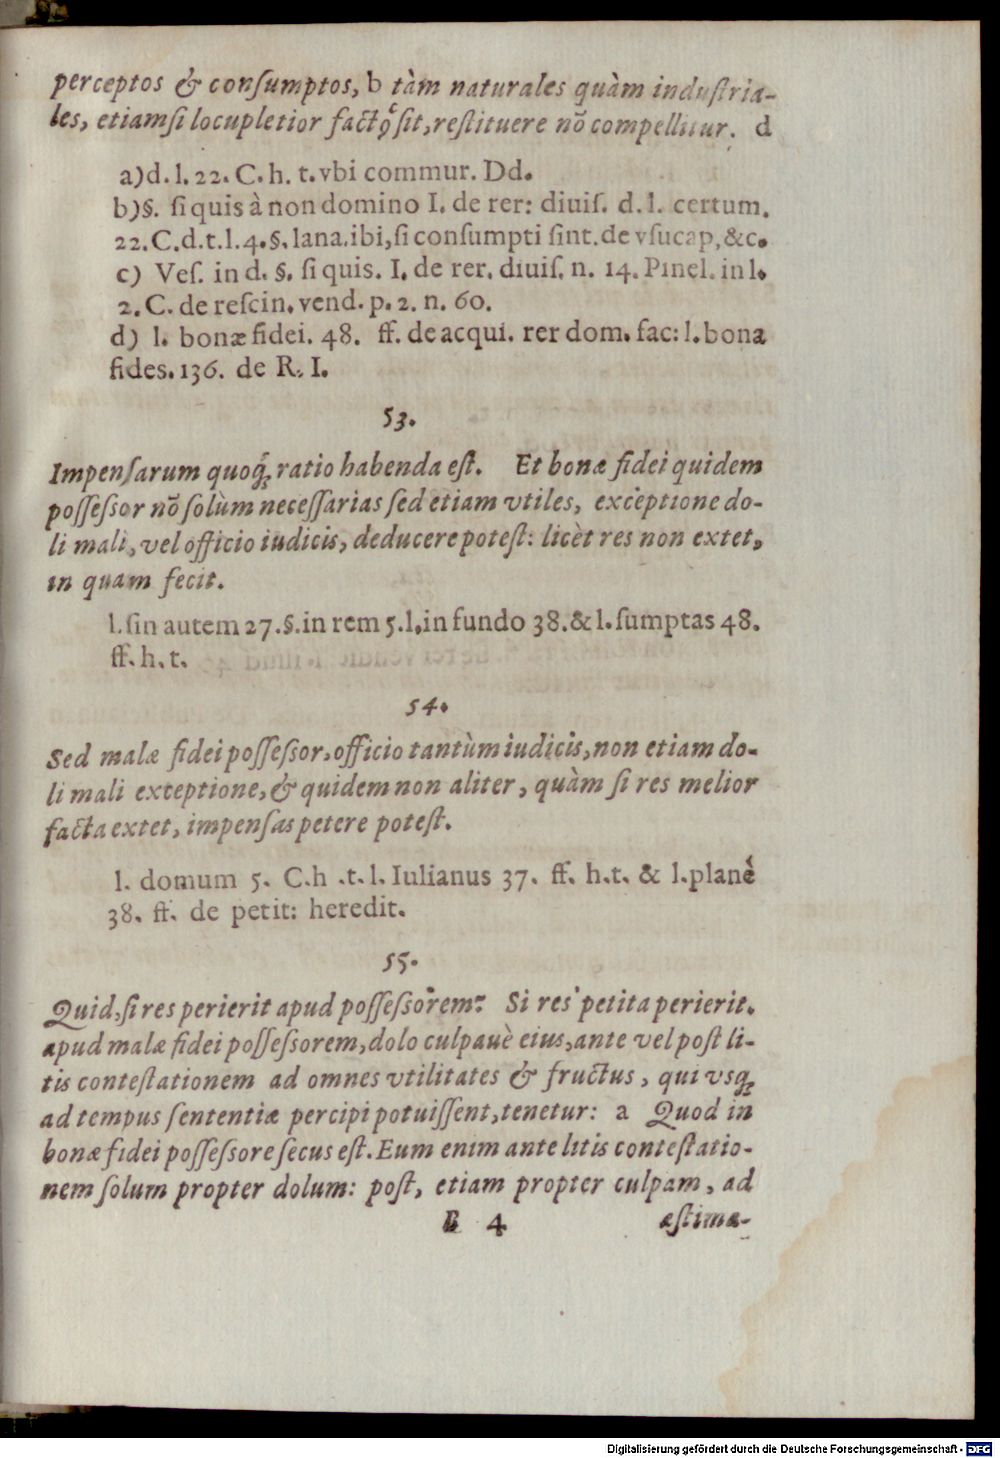 perceptos & conſumptos, b tàm naturales quàm induſtria-
les, etiamſi locupletior factꝰ ſit, reſtituere nõ compellitur. d
a) d. l. 22. C. h. t. vbi commur. Dd.
b) §. ſi quis à non domino I. de rer: diuiſ. d. l. certum.
22. C. d. t. l. 4. §. lana. ibi, ſi conſumpti ſint. de vſucap, &c.
c) Veſ. in d. §. ſi quis. I. de rer. diuiſ. n. 14. Pinel. in l.
2. C. de reſcin. vend. p. 2. n. 60.
d) l. bonæ fidei. 48. ff. de acqui. rer dom. fac: l. bona
fides. 136. de R. I.
53.
Impenſarum quoqꝫ ratio habenda eſt. Et bonæ fidei quidem
poſſeſsor nõ ſolùm neceſſarias ſed etiam vtiles, exceptione do-
li mali, vel officio iudicis, deducere poteſt: licèt res non extet,
in quam fecit.
l. ſin autem 27. §. in rem 5. l. in fundo 38. & l. ſumptas 48.
ff. h. t.
54.
Sed malæ fidei poſſeſsor, officio tantùm iudicis, non etiam do-
li mali exteptione, & quidem non aliter, quàm ſi res melior
facta extet, impenſas petere poteſt.
l. domum 5. C. h .t. l. Iulianus 37. ff. h. t. & l. planè
38. ff. de petit: heredit.
55.
Quid, ſi res perierit apud poſſeſsorem? Si res petita perierit.
apud malæ fidei poſſeſsorem, dolo culpauè eius, ante vel poſt li-
tis conteſtationem ad omnes vtilitates & fructus, qui vsqꝫ
ad tempus ſententiæ percipi potuiſſent, tenetur: a Quod in
bonæ fidei poſſeſsore ſecus eſt. Eum enim ante litis conteſtatio-
nem ſolum propter dolum: poſt, etiam propter culpam, ad
B 4 æſtima-
Digitalisierung gefördert durch die Deutsche Forschungsgemeinschaft - DFG